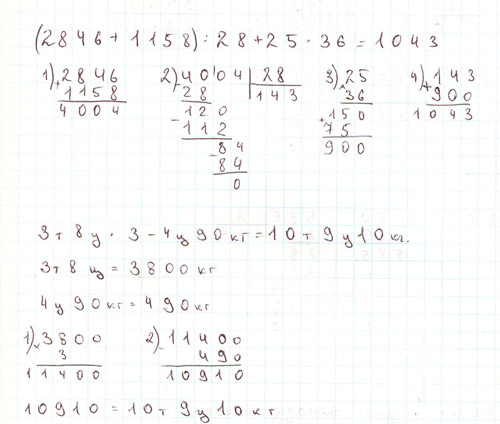 (2846+1158):28+25·36=1043
1) +2846
1158
4004
2) -4004 | 28
28 | 143
120
-112
84
-84
0
3) ×25
36
+150
75
900
4) +143
900
1043
3т 8ц · 3 - 4ц 90кг = 10т 9ц 10кг.
3т 8ц = 3800кг
4ц 90кг = 490кг
1) ×3800
3
11400
2) -11400
490
10910
10910 = 10т 9ц 10кг